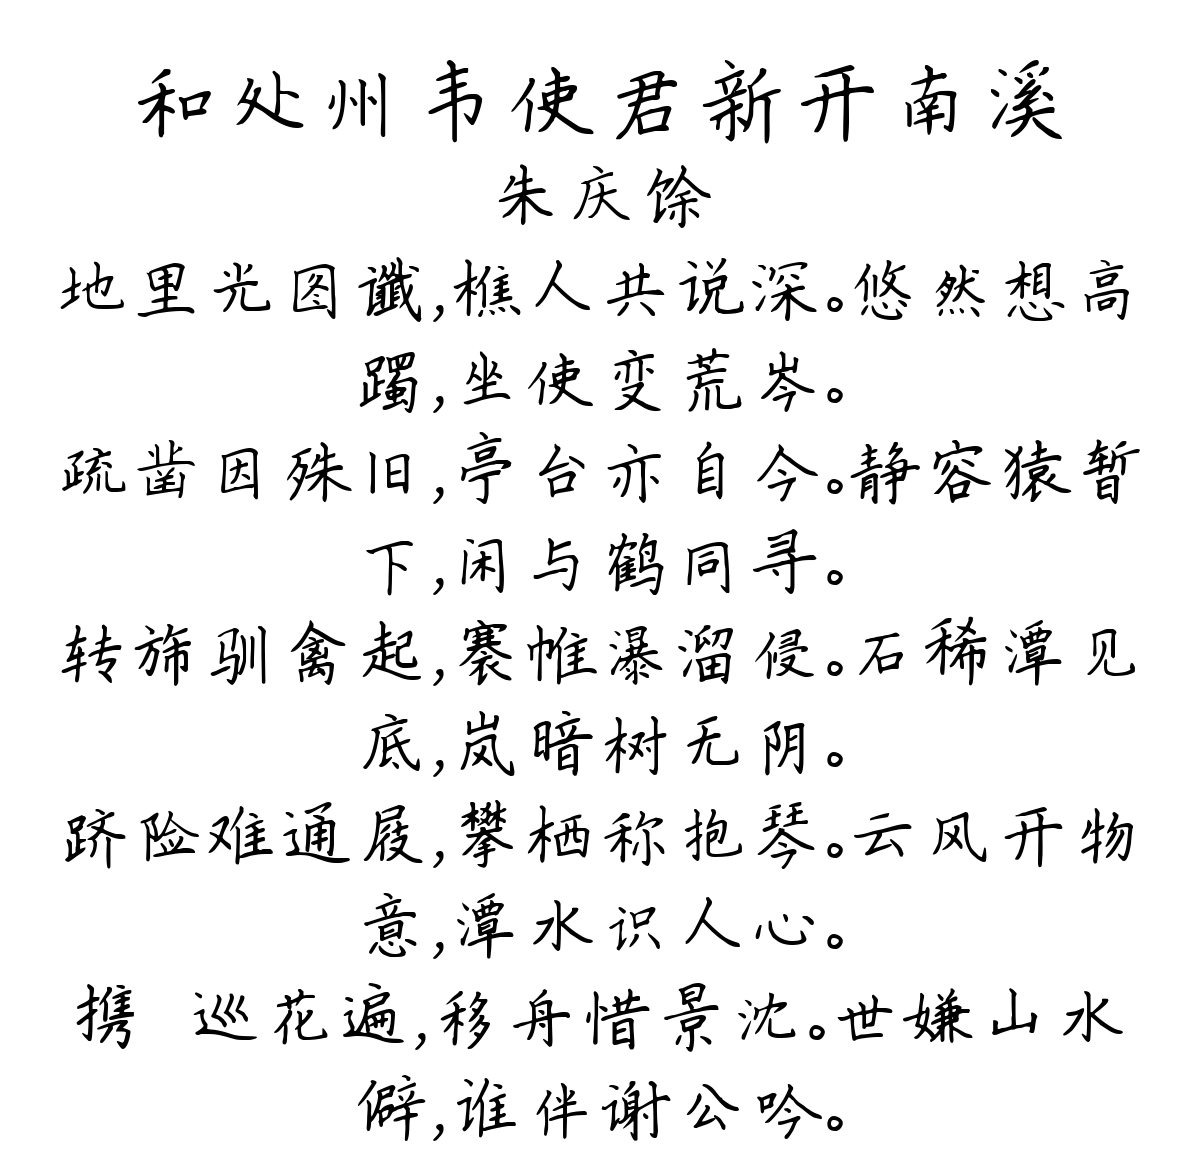 和处州韦使君新开南溪
朱庆馀
地里光图谶,樵人共说深。悠然想高
躅,坐使变荒岑。
疏凿因殊旧,亭台亦自今。静容猿暂
下,闲与鹤同寻。
转旆驯禽起,褰帷瀑溜侵。石稀潭见
底,岚暗树无阴。
跻险难通屐,攀栖称抱琴。云风开物
意,潭水识人心。
携 巡花遍,移舟惜景沈。世嫌山水
僻,谁伴谢公吟。